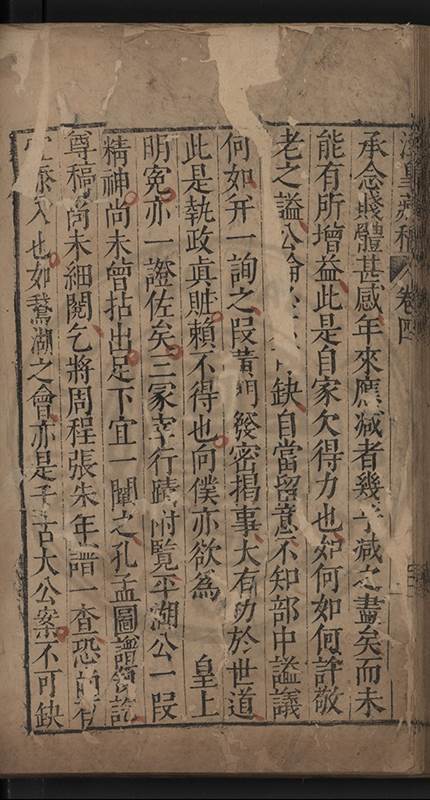 皇藏稿 卷四
承念賤體甚感年來應减者幾乎减之盡矣而未
能有所增益此是自家欠得力也如何如何許敬
老之謚公論缺自當留意不知部中謚議
何如幷一詢之叚黃門發密揭事大有功於世道
此是執政眞賍賴不得也向僕亦欲為 皇上
明寃亦一證佐矣三冡宰行蹟附覧平湖公一叚
精神尚未曾拈出足下宜一闡之孔孟圖譜
尊稿尚未細閱乞將周程張朱年譜一查恐前有
入也如鵞湖之會亦是千古大公案不可缺